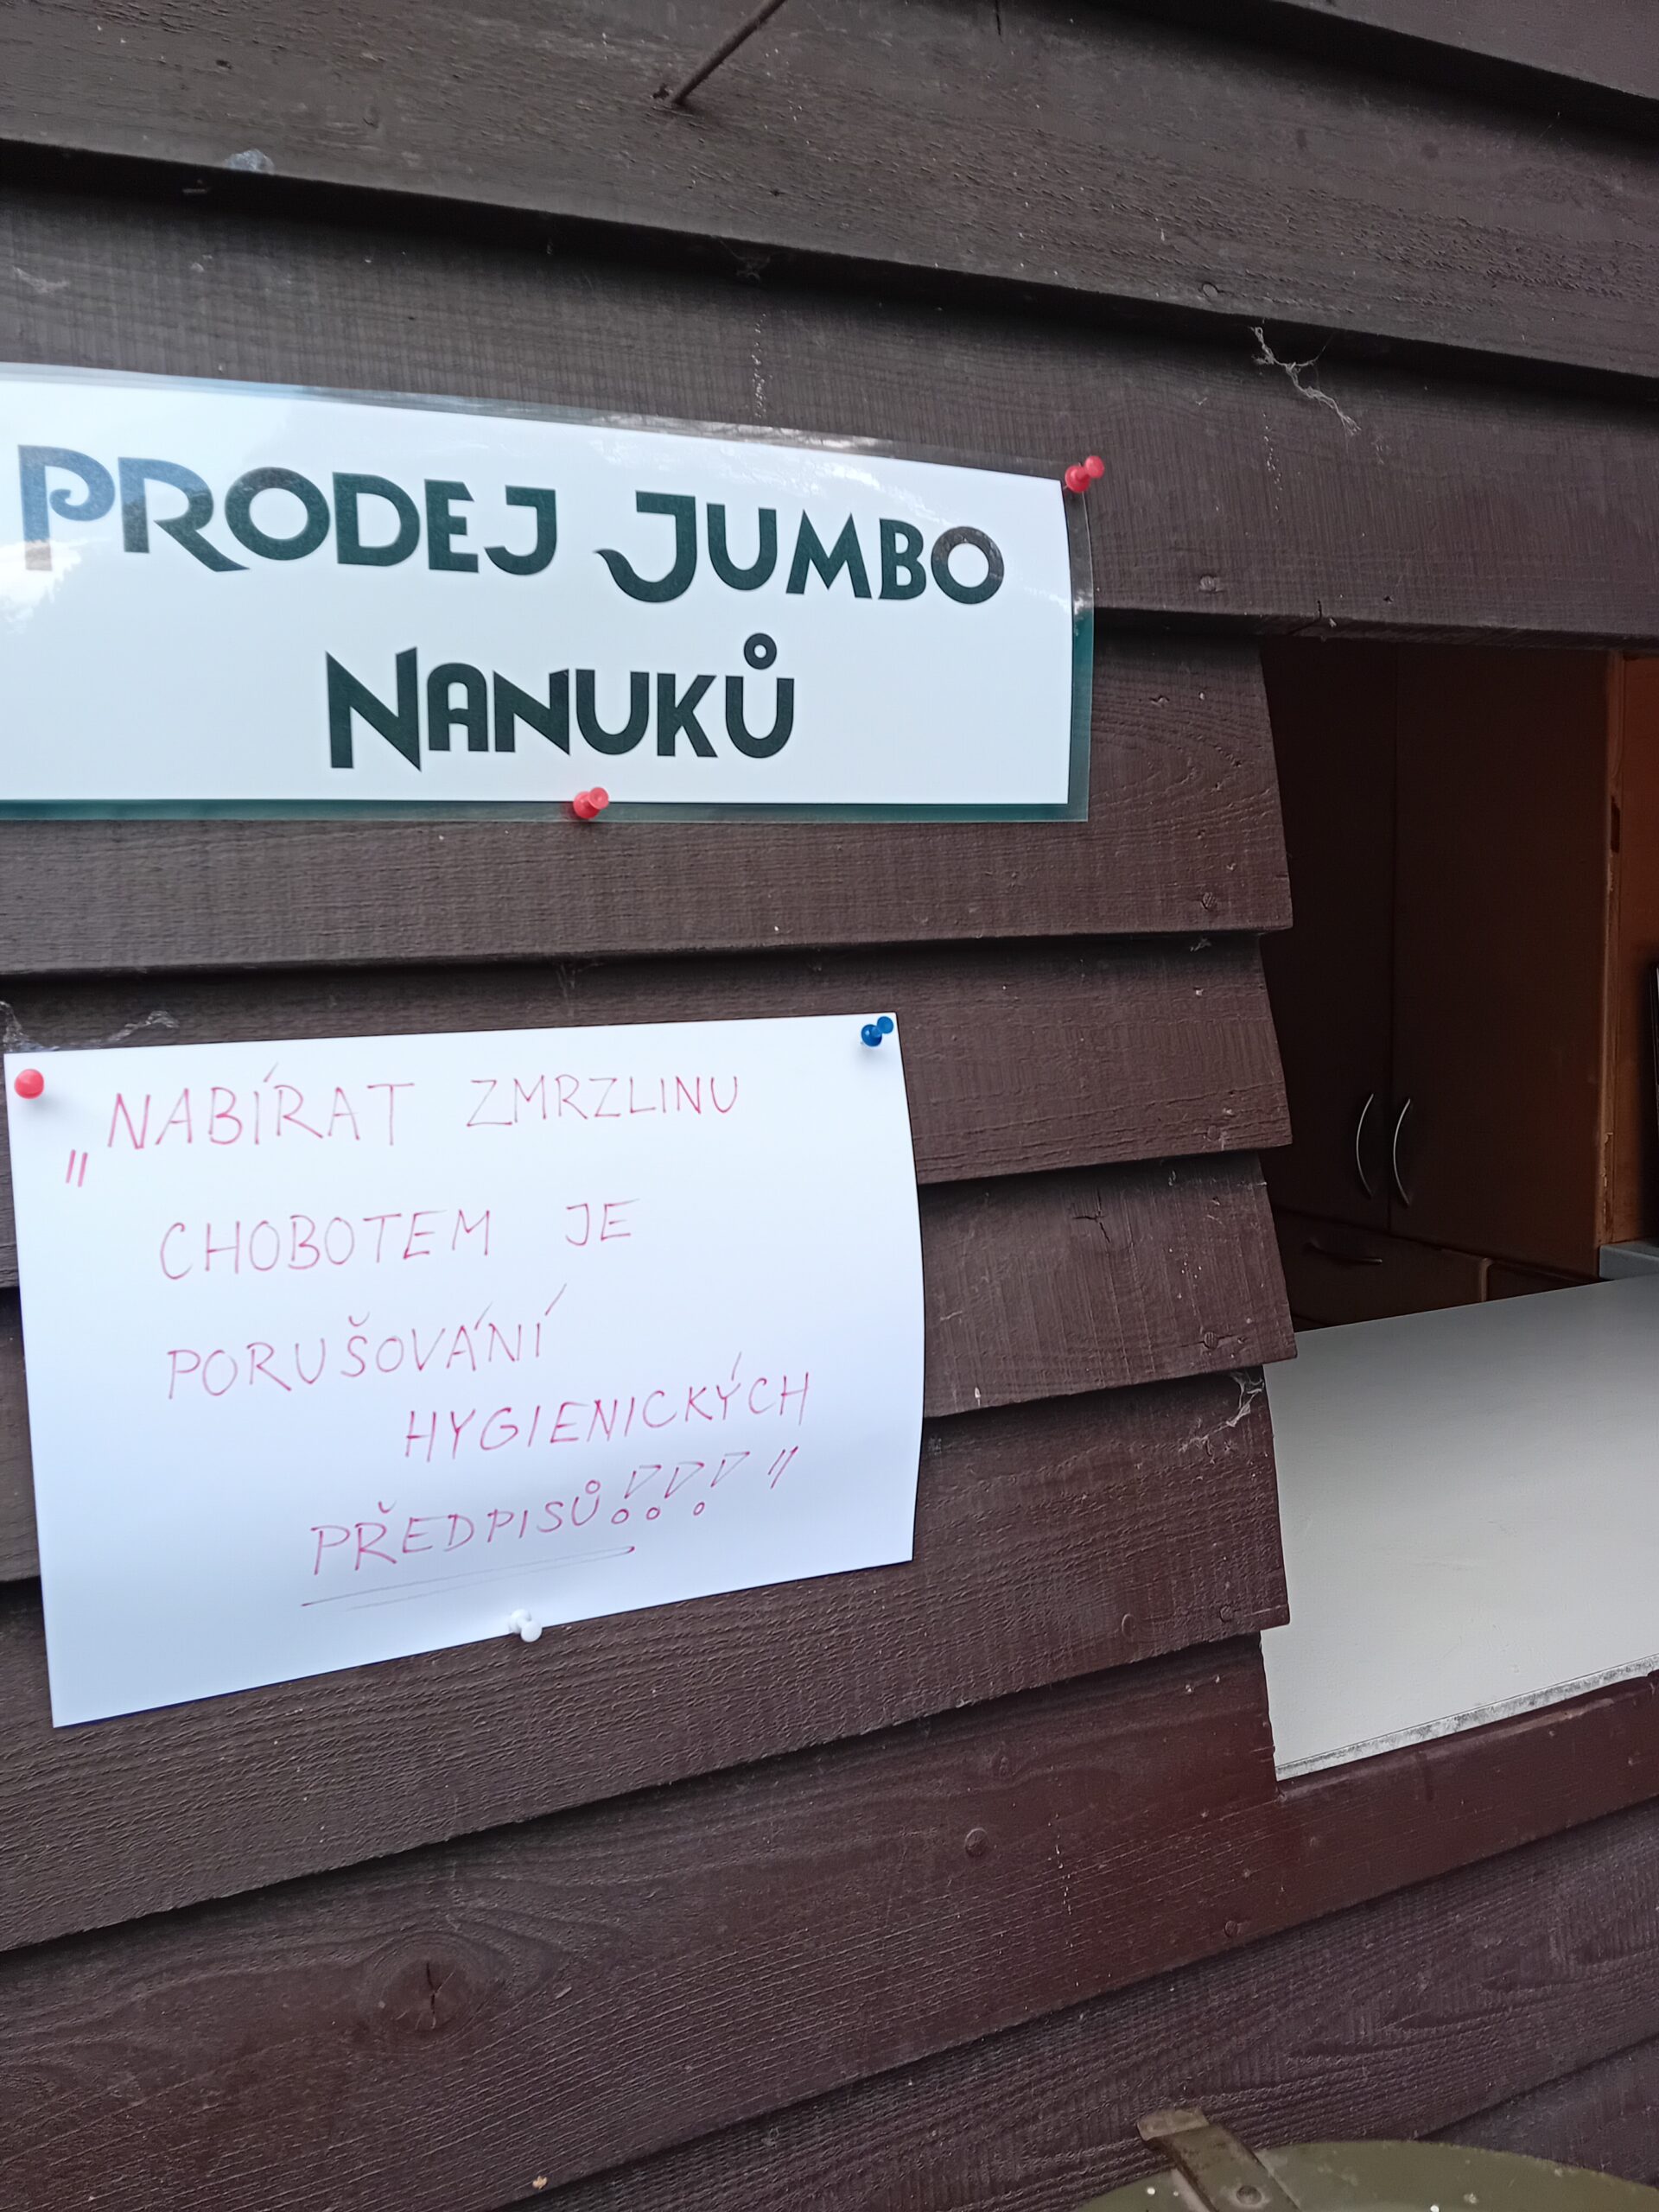 PRODEJ JUMBO
NANUKŮ
„NABÍRAT ZMRZLINU
CHOBOTEM JE
PORUŠOVÁNÍ
HYGIENICKÝCH
PŘEDPISŮ!!!"